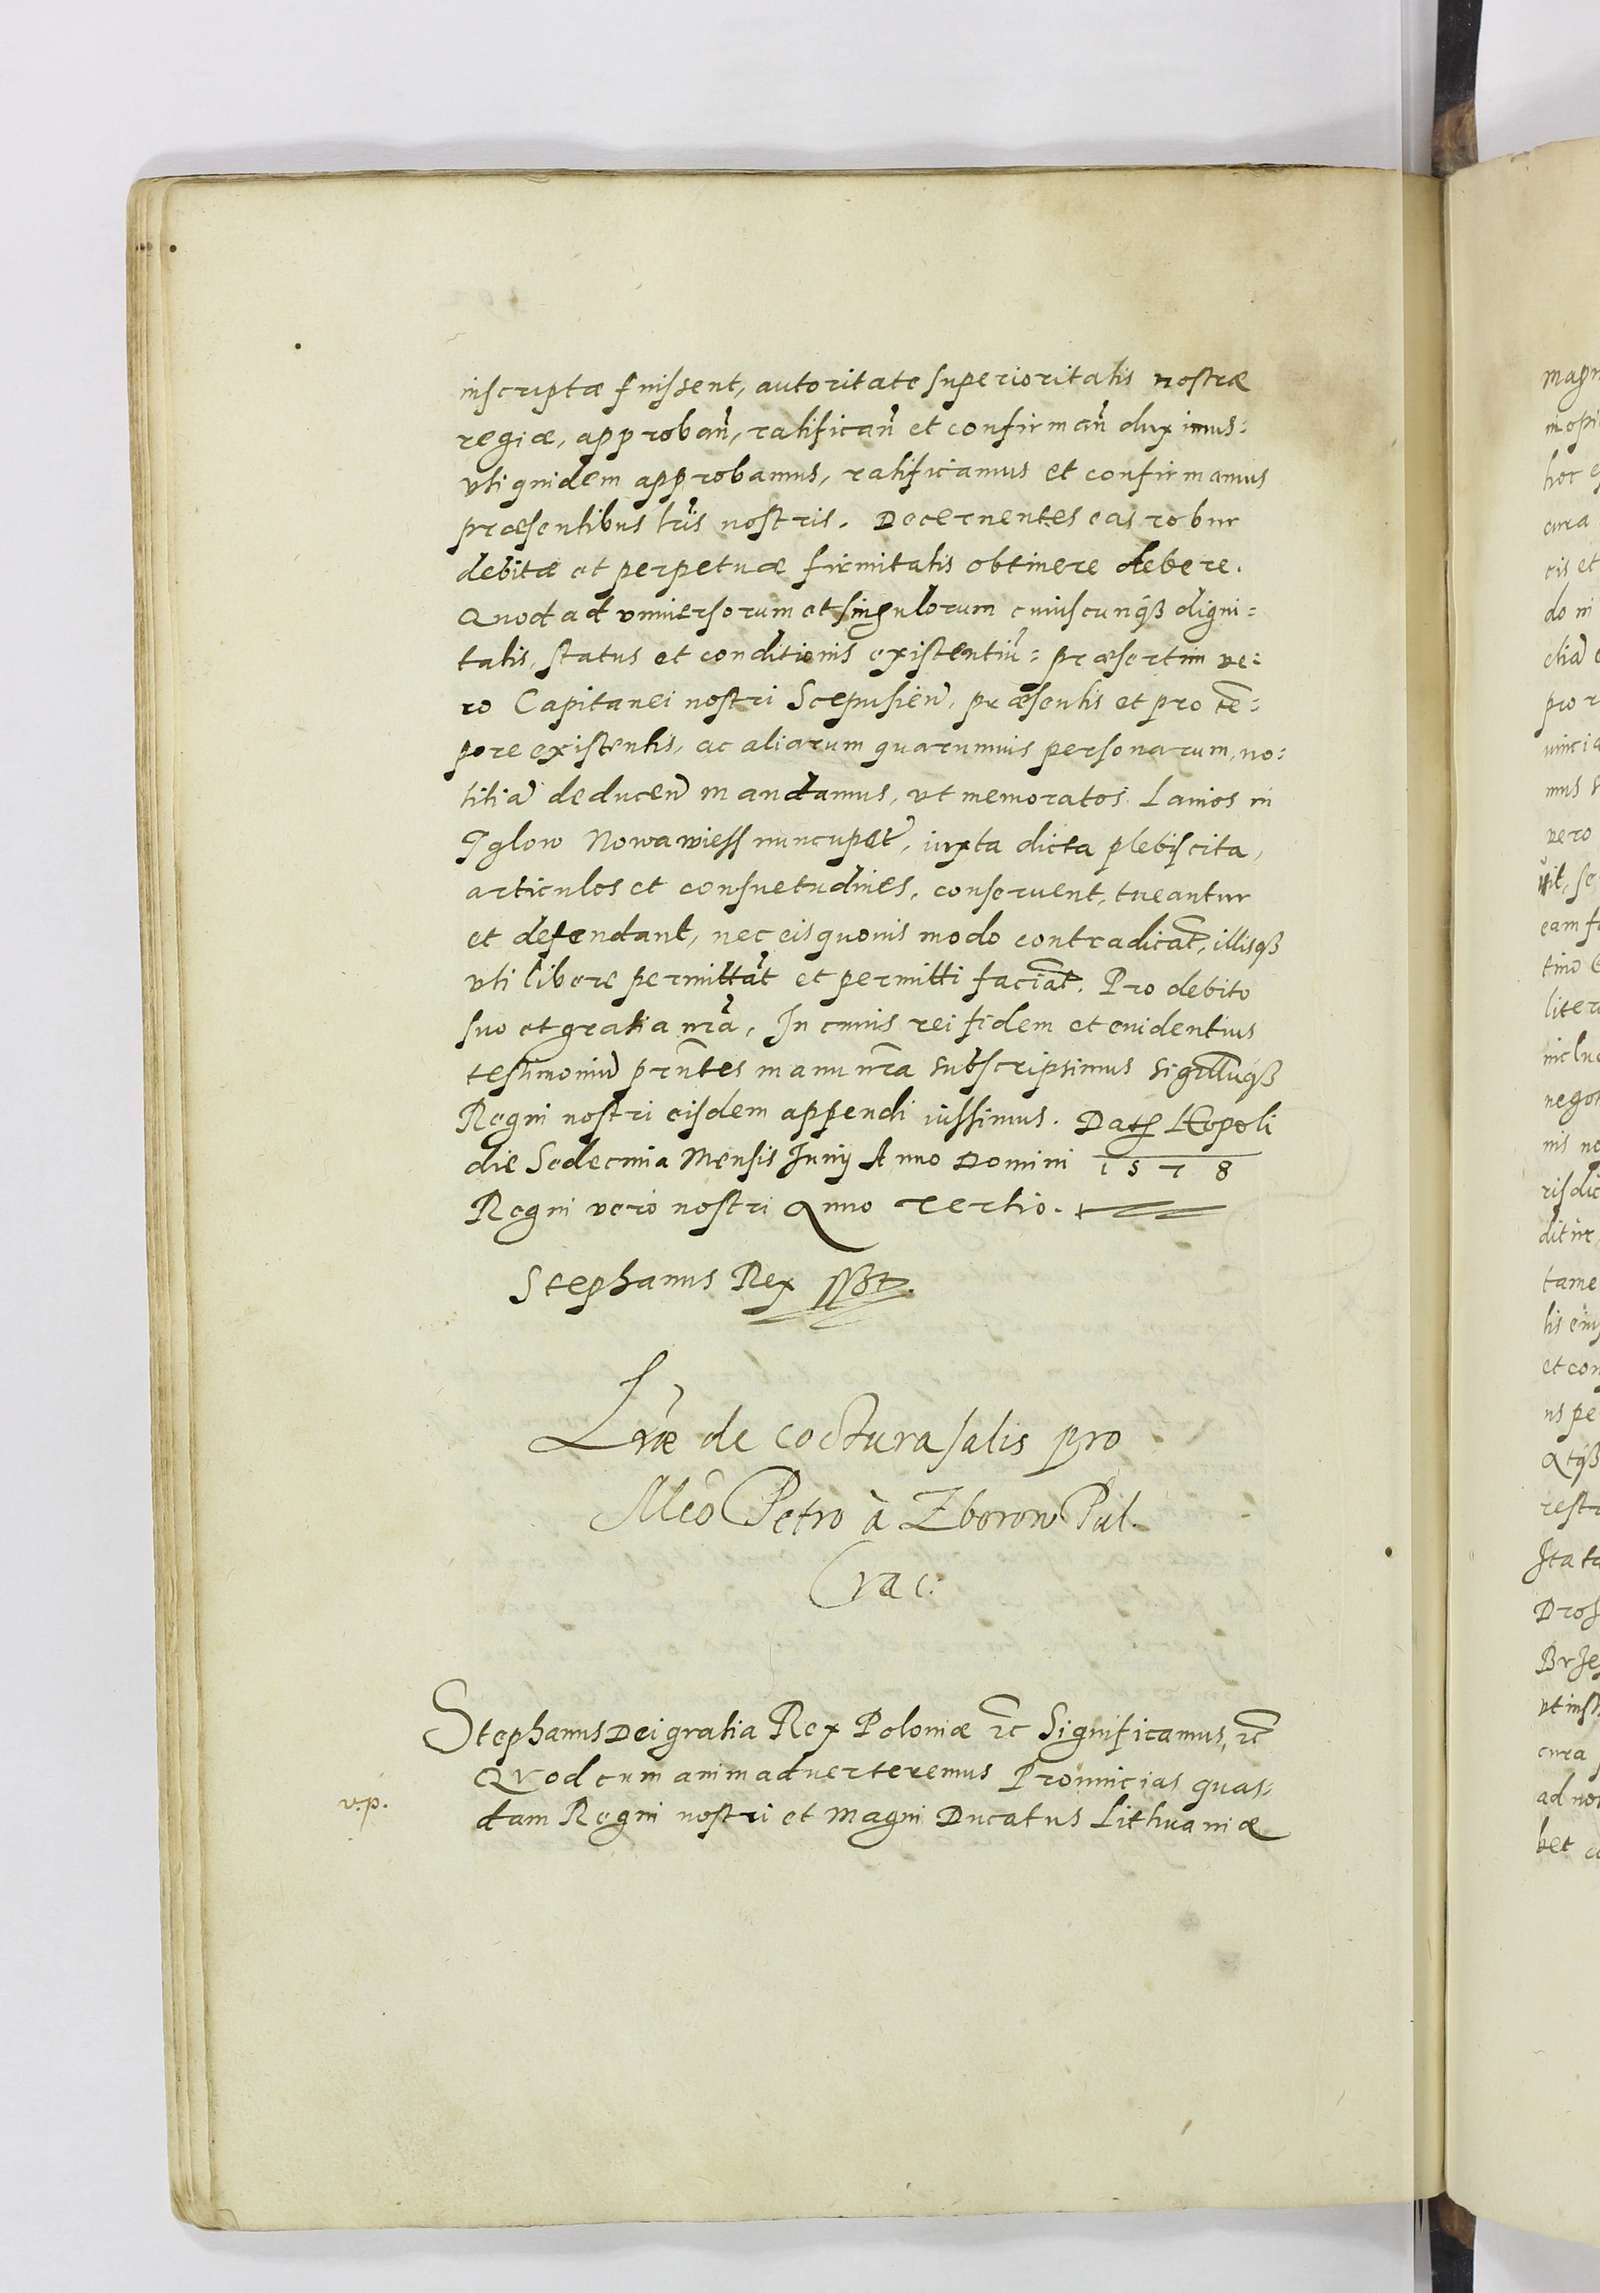 inscriptæ fuissent, autoritate superioritatis nostræ
regiæ, approban̄, ratifican̄ et confirman̄ duximus:
vti quidem approbamus, ratificamus et confirmamus
præsentibus lr̄is nostris. Decernentes eas robur
debitæ et perpetuæ firmitatis obtinere debere.
Quod ad vniuersorum et singulorum cuiuscunqꝫ digni=
tatis, status et conditionis existentiū: præsertim ve=
ro Capitanei nostri Scepusien̄, præsentis et pro tē=
pore existentis, ac aliarum quarumuis personarum, no=
titiā deducen̄ mandamus, vt memoratos Lanios in
Iglow Nowawiess nuncupat̄, iuxta dicta plebiscita,
articulos et consuetudines, conseruent, tueantur
et defendant, nec eis quouis modo contradicāt, illisqꝫ
vti libere permittāt et permitti faciāt. Pro debito
suo et gratia nr̄a, In cuius rei fidem et euidentius
testimoniū pr̄ntes manu nr̄a subscripsimus Sigillūqꝫ
Regni nostri eisdem appendi iussimus. Dat Leopoli
die Sedecima Mensis Junij Anno Domini 1578
Regni vero nostri Anno Tertio.
Stephanus Rex sst.
Lr̄æ de coctura salis pro
Mco Petro à Zborow Pal.
Crac:
Stephanus Dei gratia Rex Poloniæ etc Significamus, etc
Quod cum animaduerteremus Prouincias quas=
v.p.
dam Regni nostri et Magni Ducatus Lithuaniæ
magn
inopi
hoc e
cura
cis et
do in
etiā
pro r
uincia
mus
vero
uit, se
eam f
tino
liter
inclu
nego
nis no
risdic
ditur
tame
tis eiu
et con
us pe
Atqꝫ
restr
Ita ta
Dros
Brze
vt inst
cura
ad no
bet